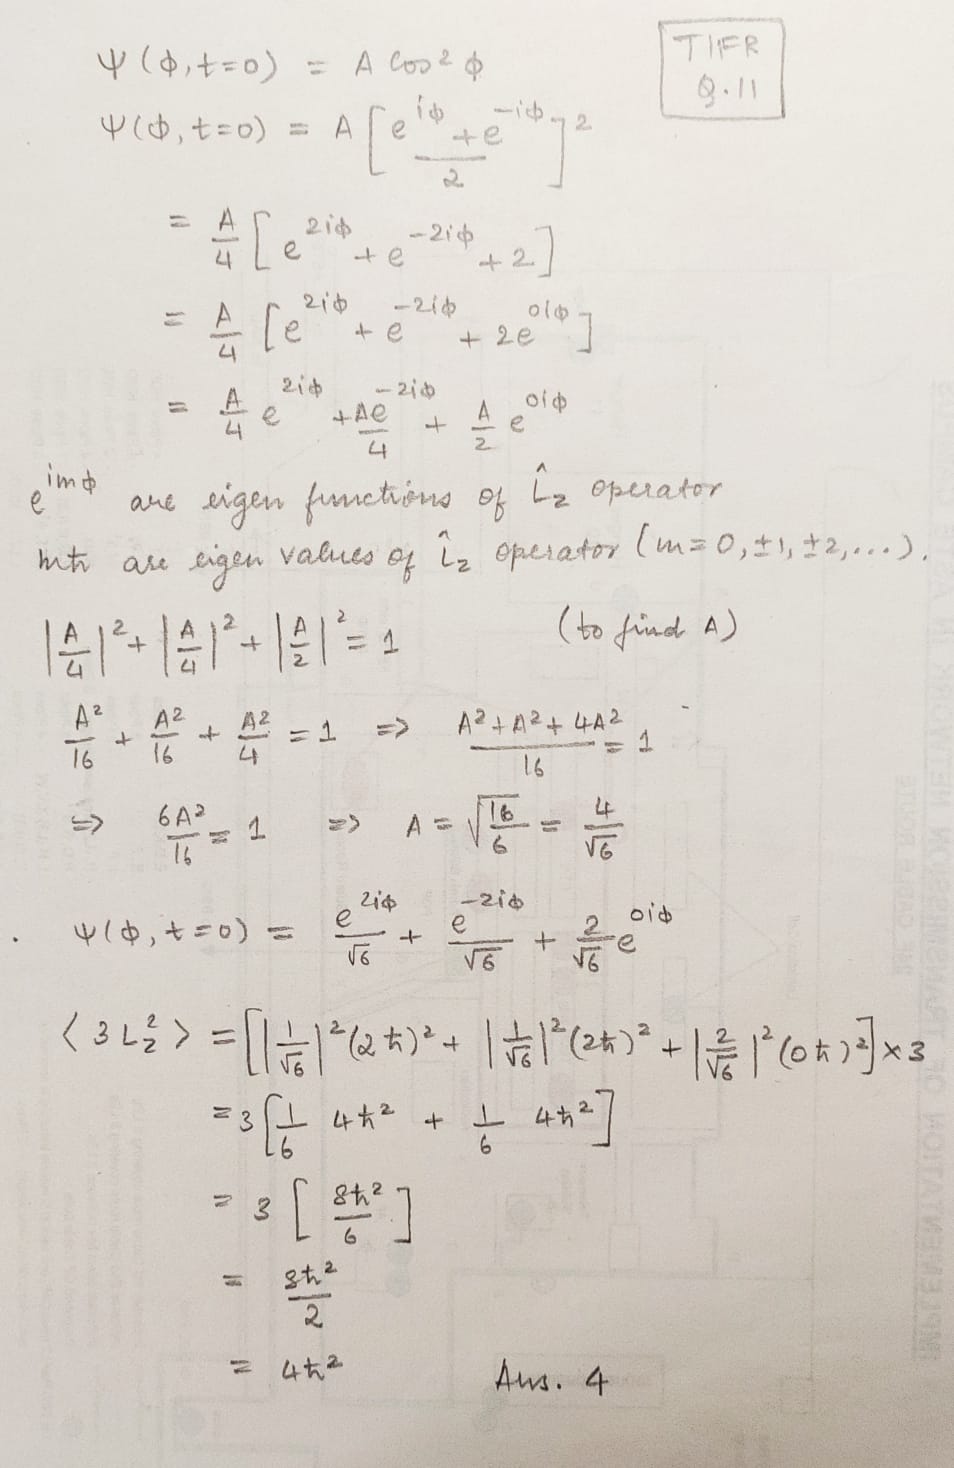 TIFR
Q.11
ψ(ϕ,t=0) = A Cos²ϕ
ψ(ϕ,t=0) = A[(e^{iϕ}+e^{-iϕ})/2]²
= A/4 [e^{2iϕ}+e^{-2iϕ}+2]
= A/4 [e^{2iϕ} + e^{-2iϕ} + 2e^{0iϕ}]
= A/4 e^{2iϕ} + Ae^{-2iϕ}/4 + A/2 e^{0iϕ}
e^{imϕ} are eigen functions of L̂z operator
mħ are eigen values of L̂z operator (m=0,±1,±2,...).
|A/4|² + |A/4|² + |A/2|² = 1 (to find A)
A²/16 + A²/16 + A²/4 = 1 => (A²+A²+4A²)/16 = 1
=> 6A²/16 = 1 => A = √(16/6) = 4/√6
. ψ(ϕ,t=0) = e^{2iϕ}/√6 + e^{-2iϕ}/√6 + 2/√6 e^{0iϕ}
⟨3Lz²⟩ = [|1/√6|²(2ħ)² + |1/√6|²(2ħ)² + |2/√6|²(0ħ)²]×3
= 3[1/6 4ħ² + 1/6 4ħ²]
= 3[8ħ²/6]
= 8ħ²/2
= 4ħ² Ans. 4